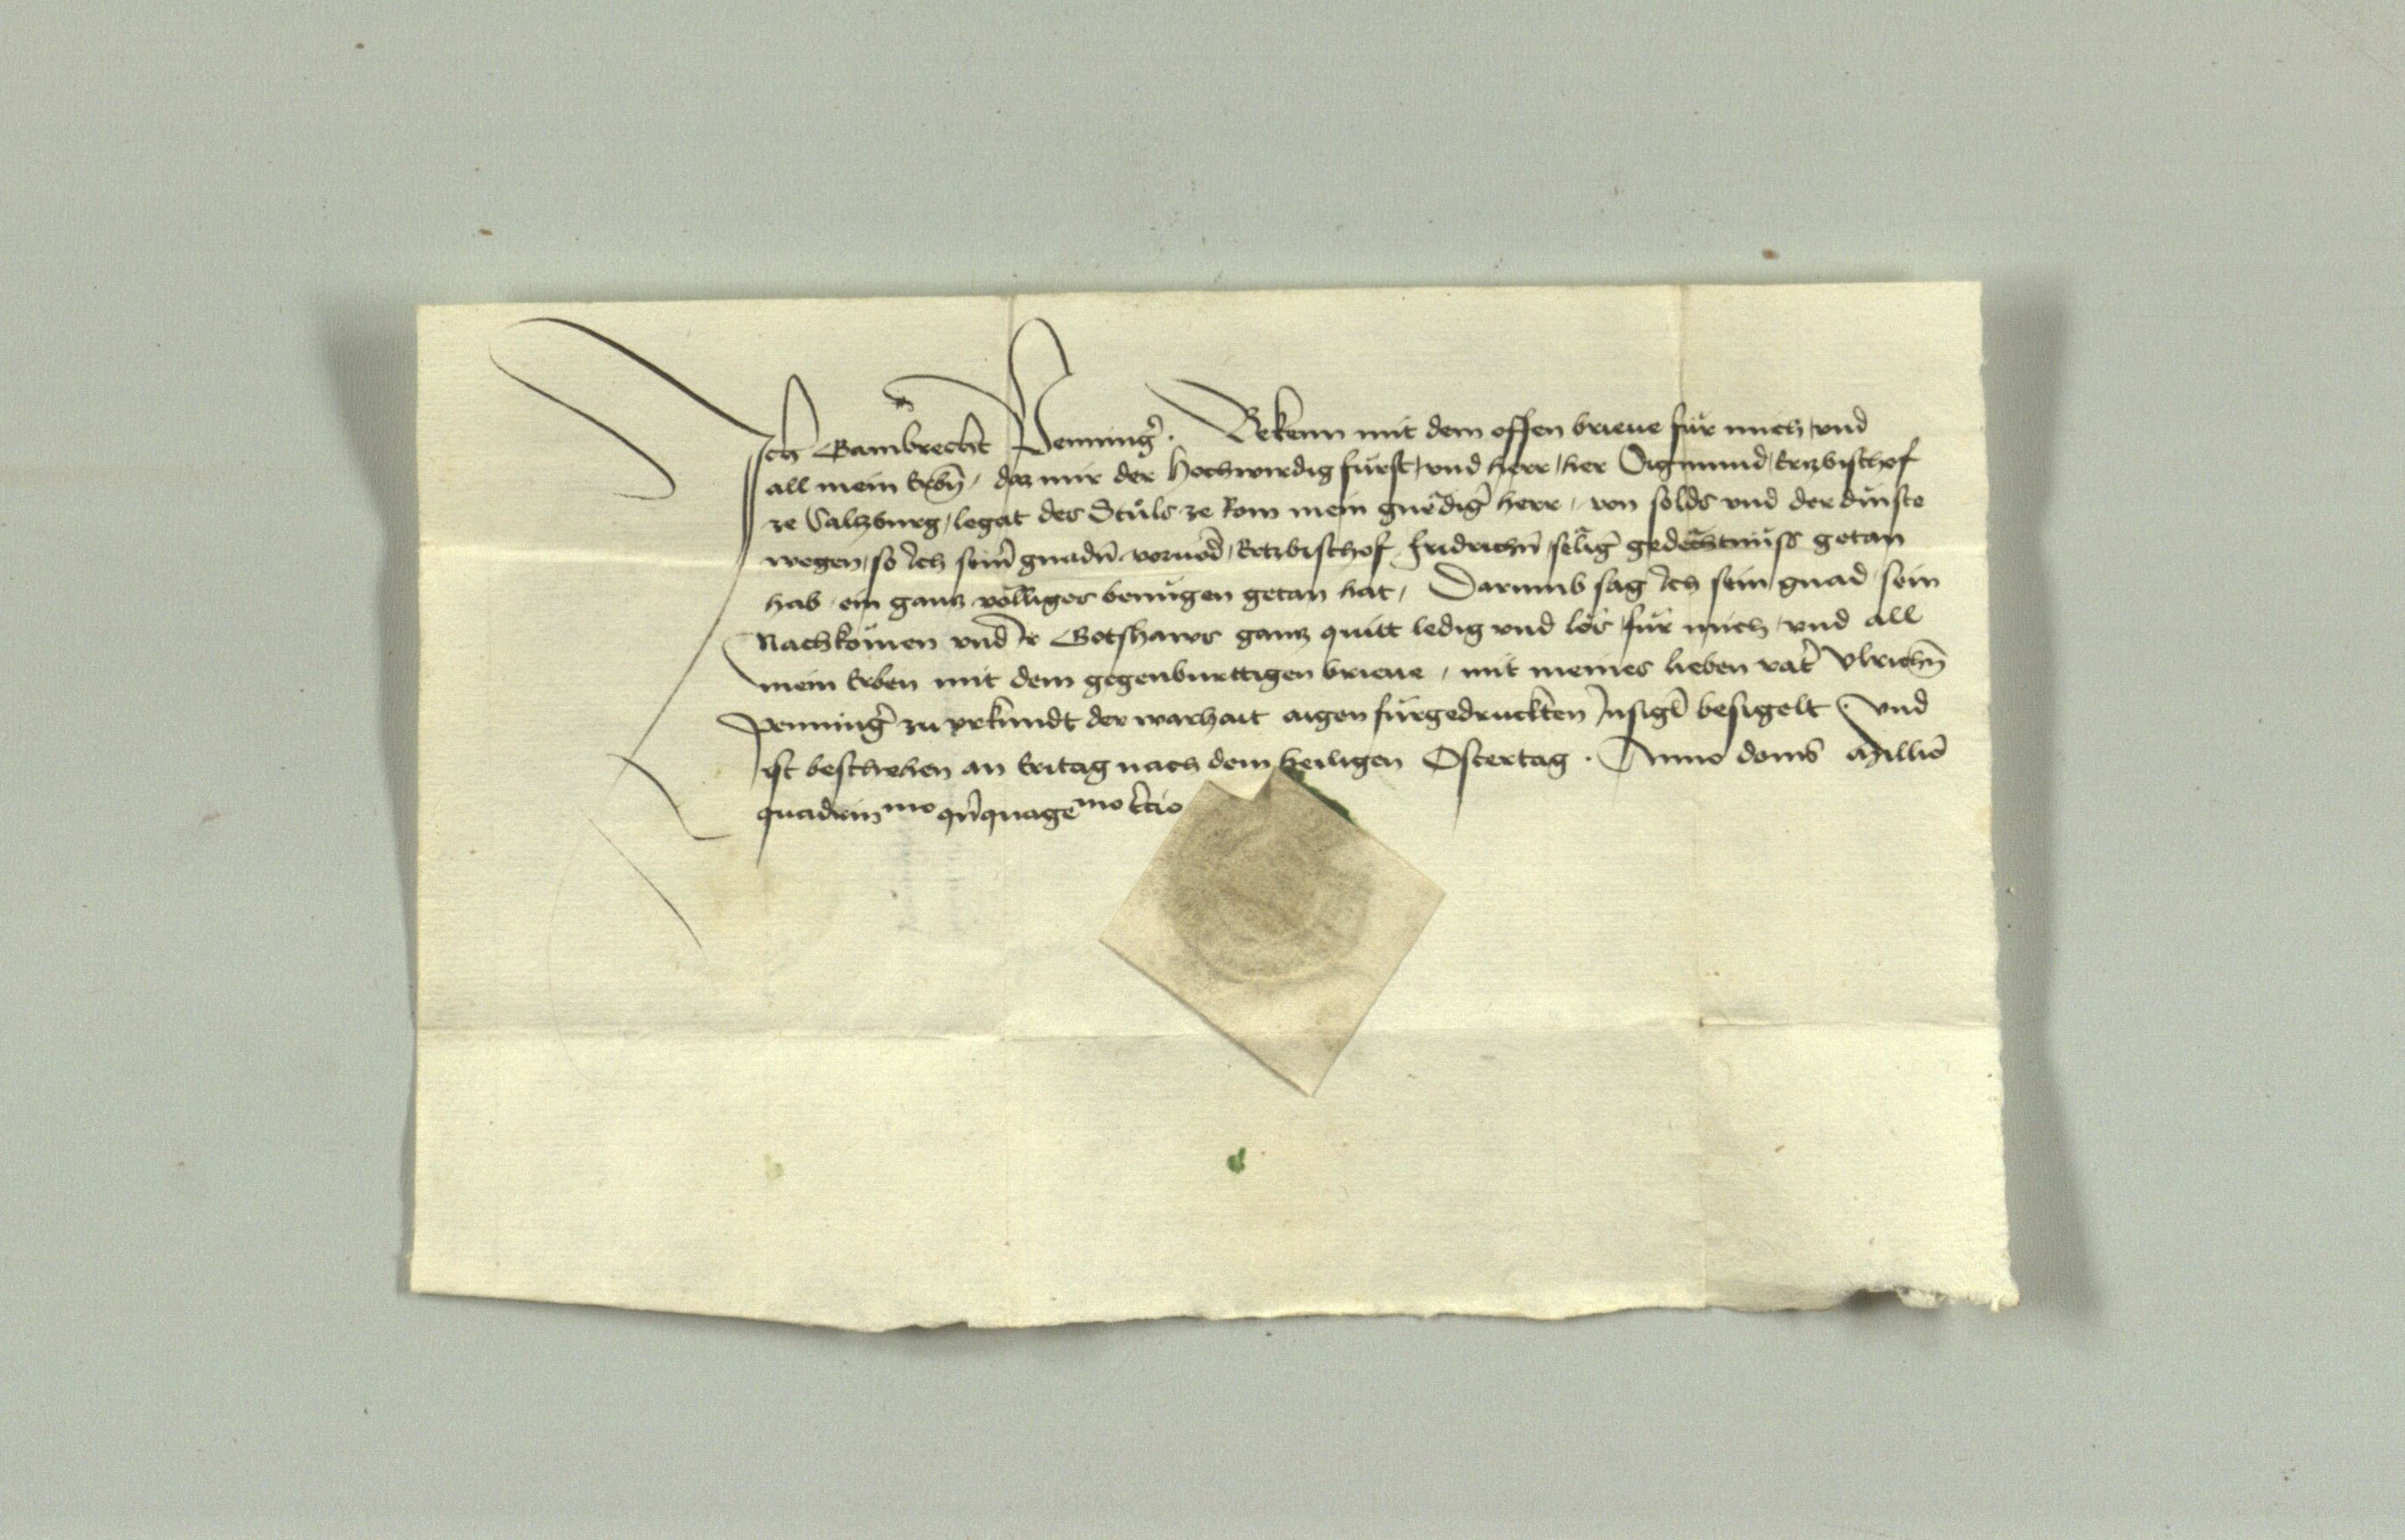 Ich Gambrecht Penninger̄. Bekenn mit dem offen brieue für mich vnd
all mein Erbn̄, daz mir der Hochwirdig fürst vnd herr her Sigmund Ertzbischof
ze Salzburg, legat des Stůls ze Rom mein gnêdiḡ herr, von solds vnd der dinste
wegen, so Ich sein̄ gnadn̄ voruod̄ Ertzbischof Fridrichn̄ sêliḡ gedêchtnüss getan
hab, ein gantz völliges benügen getan hat, Darumb sag Ich sein gnad sein
Nachkömen vnd Ir Gotshaws gantz quitt ledig vnd los für mich vnd all
mein Erben mit dem gegenburttigen brieue, mit meines lieben vat̄ Vlrichn̄
Penninḡ zu vrkundt der warhait aigen fürgedruckten Insigl̄ besigelt. Vnd
ist beschehen an Eritag nach dem heiligen Ostertag. Anno domī Millīo
quadrin mo qn̄quage mo t̄cio